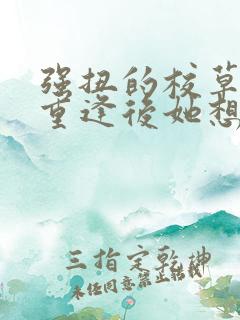 强扭的校草
重逢后她想
三指定乾坤
未任同意禁止转载